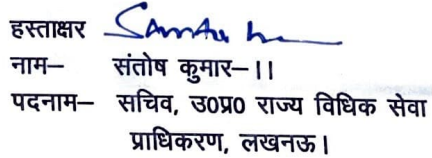 हस्ताक्षर
नाम– संतोष कुमार–।।
पदनाम– सचिव, उ०प्र० राज्य विधिक सेवा
प्राधिकरण, लखनऊ।